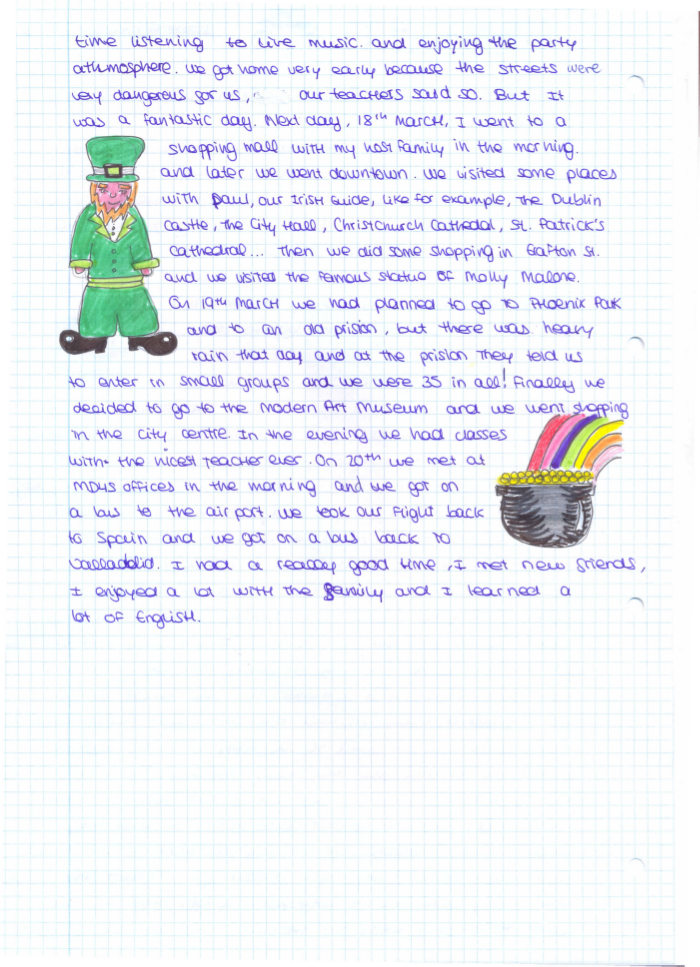 time listening to live music. and enjoying the party
athmosphere. We got home very early because the streets were
very dangerous for us, our teachers said so. But it
was a fantastic day. Next day, 18th March, I went to a
shopping mall with my host family in the morning.
and later we went downtown. We visited some places
with Paul, our Irish Guide, like for example, the Dublin
Castle, the City Hall, Christchurch Cathedal, St. Patrick's
Cathedral... Then we did some shopping in Grafton St.
and we visited the famous statue of Molly Malone.
On 19th March we had planned to go to Phoenix Park
and to an old prision, but there was heavy
rain that day and at the prision they told us
to enter in small groups and we were 35 in all! Finally we
decided to go to the Modern Art Museum and we went shopping
in the city centre. In the evening we had classes
with the nicest teacher ever. On 20th we met at
MD4S offices in the morning and we got on
a bus to the airport. We took our flight back
to Spain and we got on a bus back to
Valladolid. I had a really good time, I met new friends,
I enjoyed a lot with the family and I learned a
lot of English.